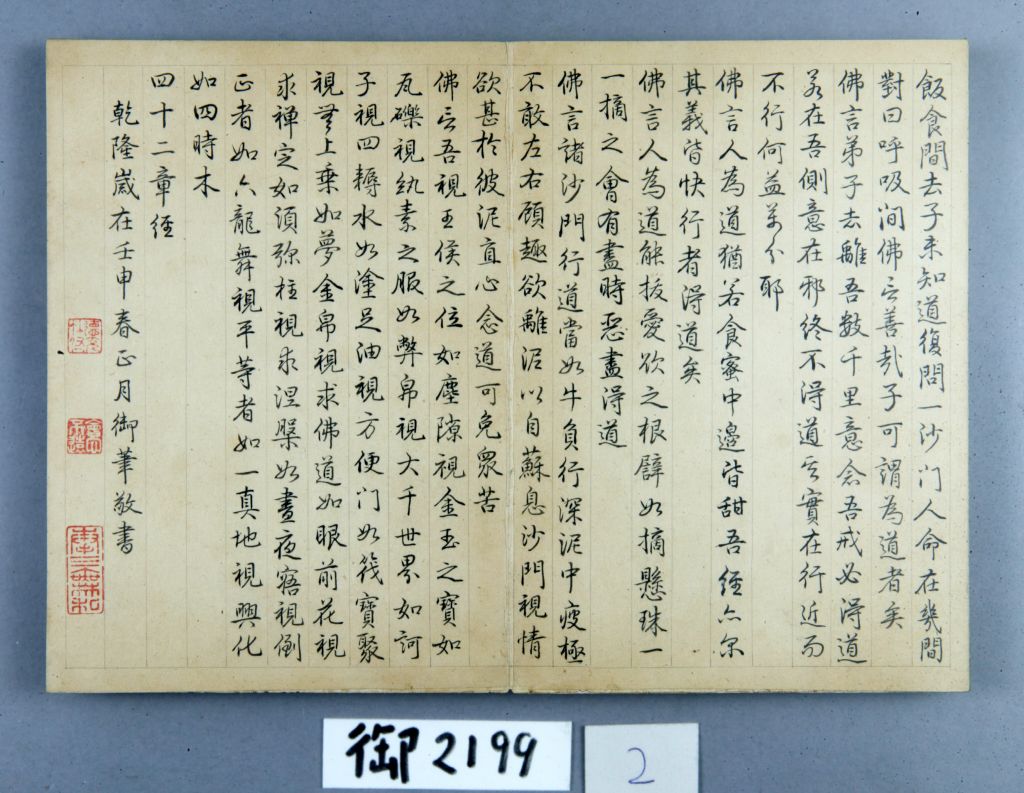 飯食間去子未知道復問一沙门人命在幾間
對曰呼吸間佛言善哉子可謂為道者矣
佛言弟子去離吾數千里意念吾戒必得道
若在吾側意在邪終不得道其實在行近而
不行何益萬分耶
佛言人為道猶若食蜜中邊皆甜吾經亦尔
其義皆快行者得道矣
佛言人為道能拔愛欲之根譬如摘懸珠一
一摘之會有盡時惡盡得道
佛言諸沙門行道當如牛負行深泥中疲極
不敢左右顧趣欲離泥以自蘇息沙門視情
欲甚於彼泥直心念道可免眾苦
佛言吾視王侯之位如塵隙視金玉之寶如
瓦礫視紈素之服如弊帛視大千世界如訶
子視四耨水如塗足油視方便门如筏寶聚
視無上乘如夢金帛視求佛道如眼前花視
求禅定如須弥柱視求涅槃如晝夜寤視倒
正者如六龍舞視平等者如一真地視興化
如四時木
四十二章經
乾隆嵗在壬申春正月御筆敬書
御2199
2